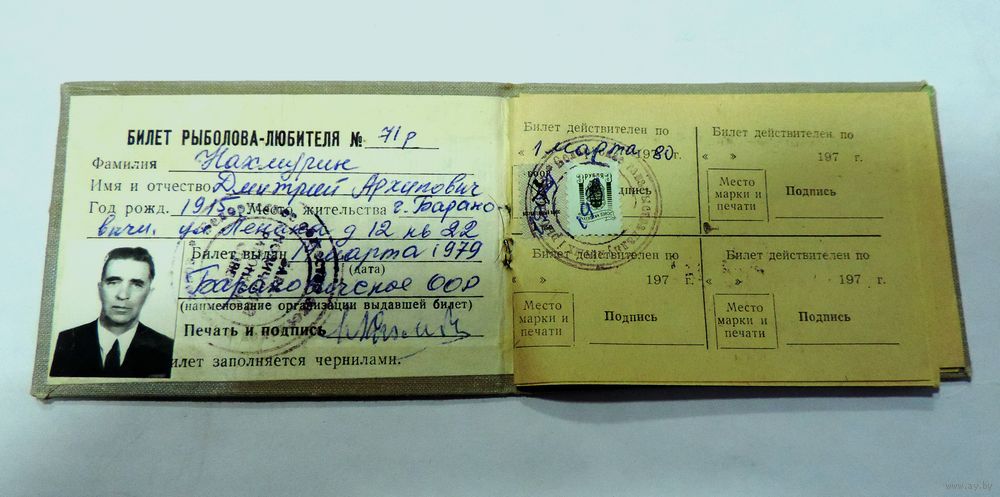 БИЛЕТ РЫБОЛОВА-ЛЮБИТЕЛЯ № 71р
Фамилия Нахмурин
Имя и отчество Дмитрий Архипович
Год рожд. 1915 Место жительства г. Барано
вичи. ул Ленина д 12 кв 22
Билет выдан 1 марта 1979
(дата)
Барановичское ООР
(наименование организации выдавшей билет)
Печать и подпись
илет заполняется чернилами.
Билет действителен по
1 марта 80
дпись
Билет действителен по
« » 197 г.
Место марки и печати
Подпись
Билет действителен по
197 г.
Место марки и печати
Подпись
Билет действителен по
« » 197 г.
Место марки и печати
Подпись
www.ay.by